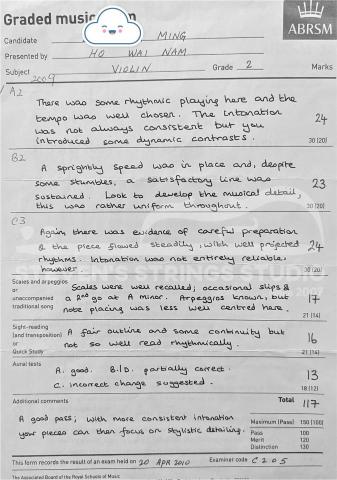 Graded music
ABRSM
Candidate MING
Presented by HO WAI NAM
Subject VIOLIN Grade 2 Marks
2009
A2
There was some rhythmic playing here and the
tempo was well chosen. The intonation 24
was not always consistent but you
introduced some dynamic contrasts. 30 (20)
B2
A sprightly speed was in place and, despite
some stumbles, a satisfactory line was 23
sustained. Look to develop the musical detail,
this was rather uniform throughout. 30 (20)
C3
Again, there was evidence of careful preparation
& the piece flowed steadily, with well projected 24
rhythms. Intonation was not entirely reliable,
however. 30 (20)
Scales and arpeggios
or
unaccompanied
traditional song
Scales were well recalled; occasional slips &
a 2nd go at A minor. Arpeggios known, but 17
note placing was less well centred here.
21 (14)
Sight-reading
(and transposition)
or
Quick Study
A fair outline and some continuity but 16
not so well read rhythmically.
21 (14)
Aural tests
A. good. B.I.D. partially correct. 13
C. incorrect change suggested.
18 (12)
Additional comments Total 117
A good pass; with more consistent intonation
your pieces can then focus on stylistic detailing.
Maximum (Pass) 150 (100)
Pass 100
Merit 120
Distinction 130
This form records the result of an exam held on 20 APR 2010 Examiner code C205
The Associated Board of the Royal Schools of Music